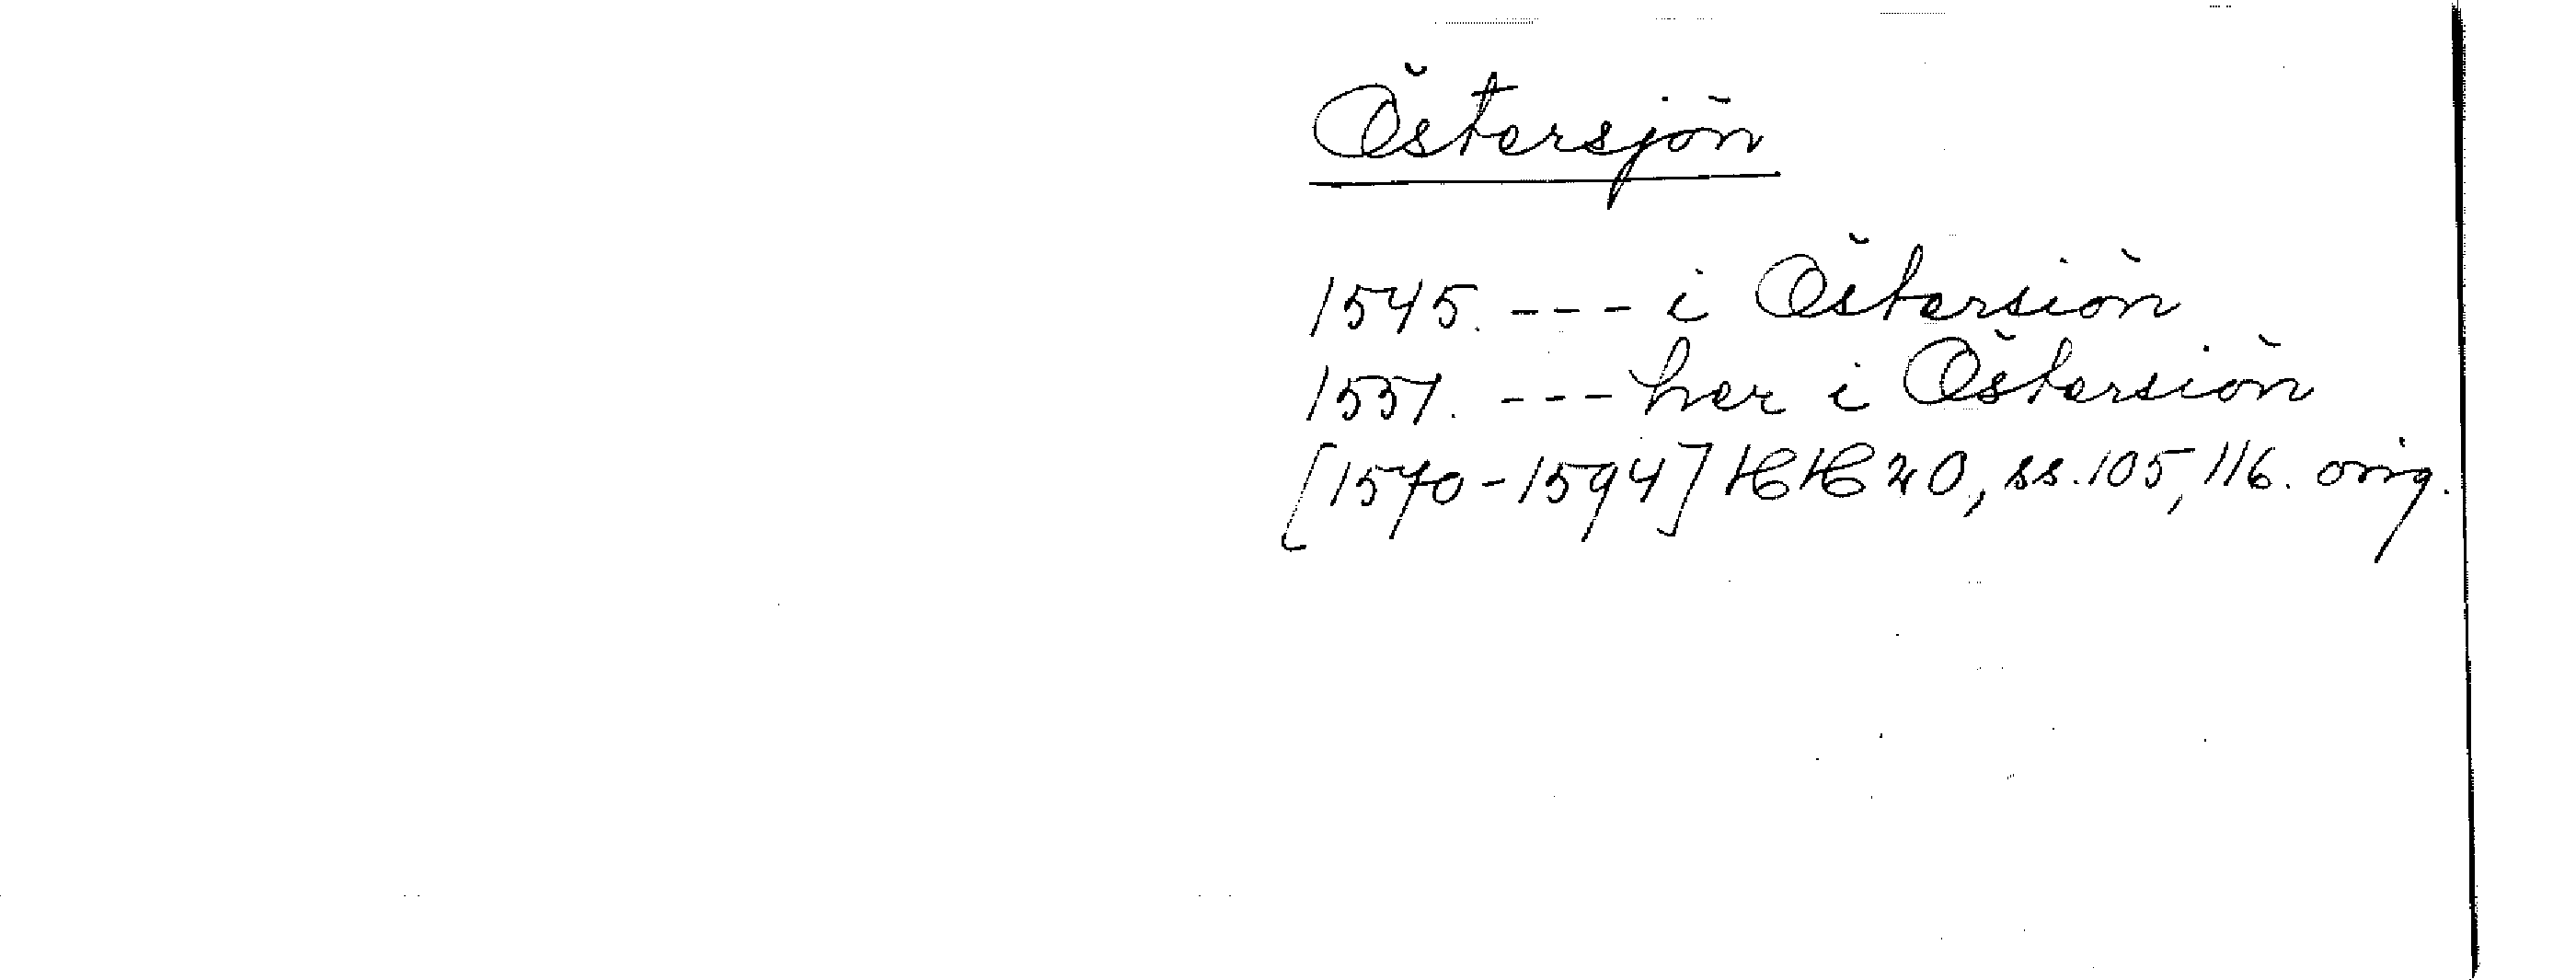 Östersjön
1545. --- i Östersiön
1557. --- her i Östersiön
[1570-1594] HH 20, ss. 105, 116. orig.